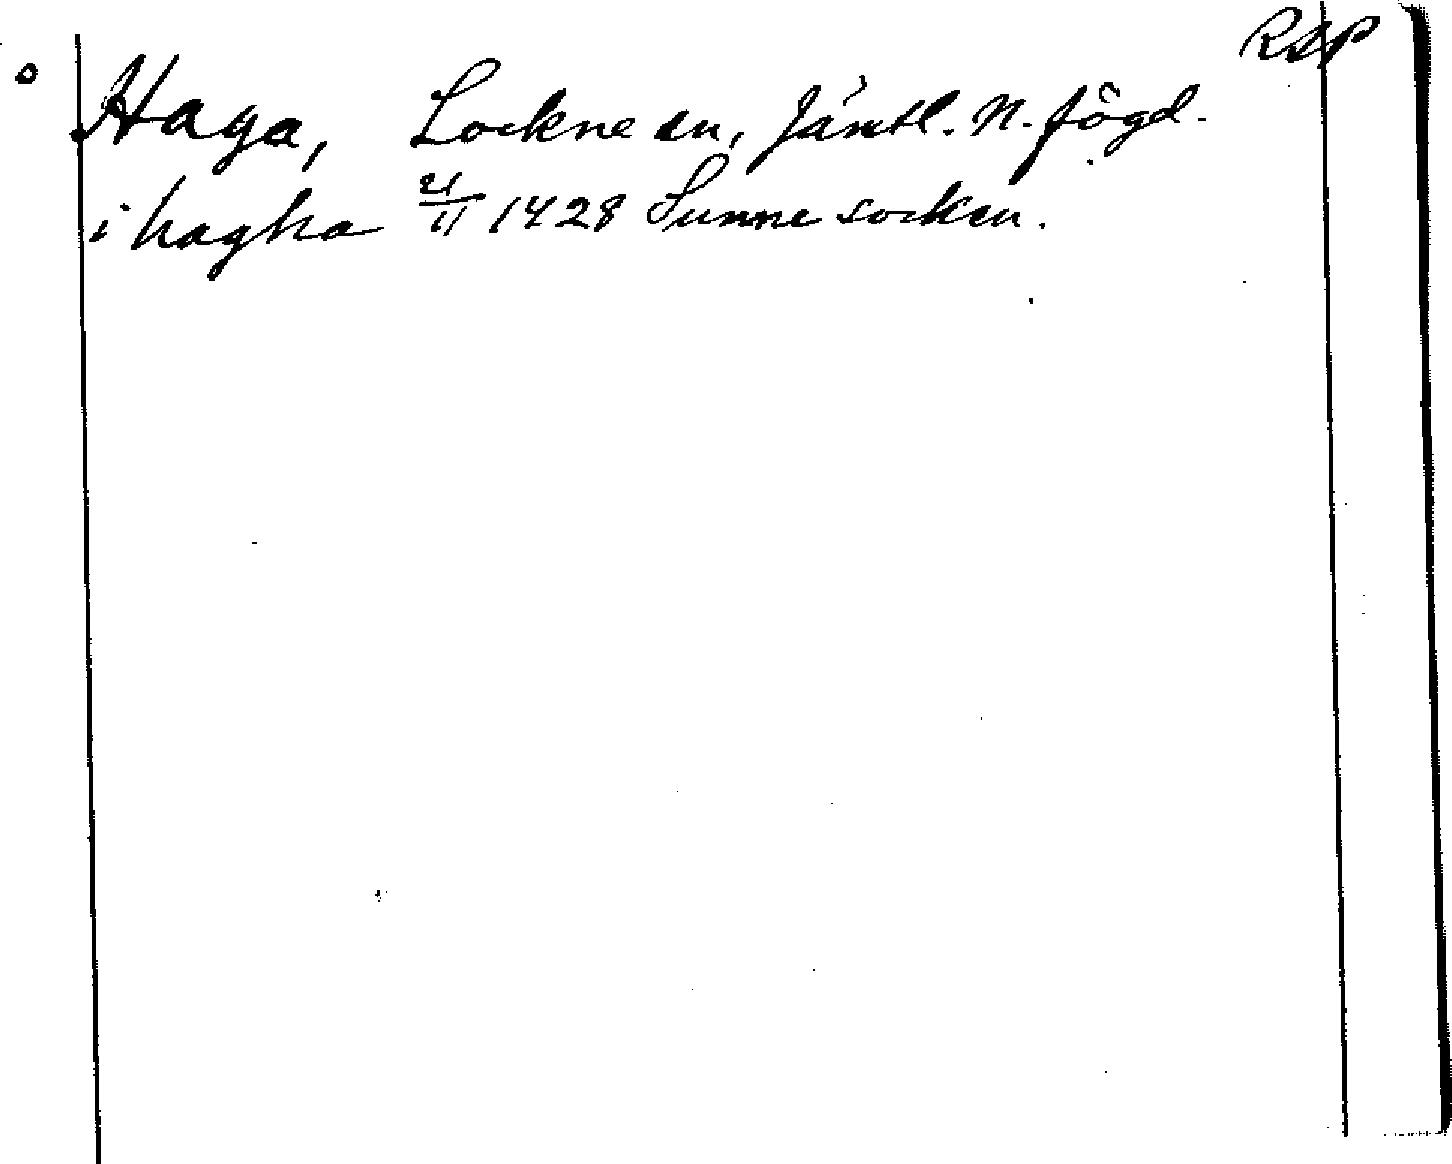 RAP
Haga, Lockne sn, Jämtl. N. fögd.
i hagha 21/11 1428 Sunne socken.